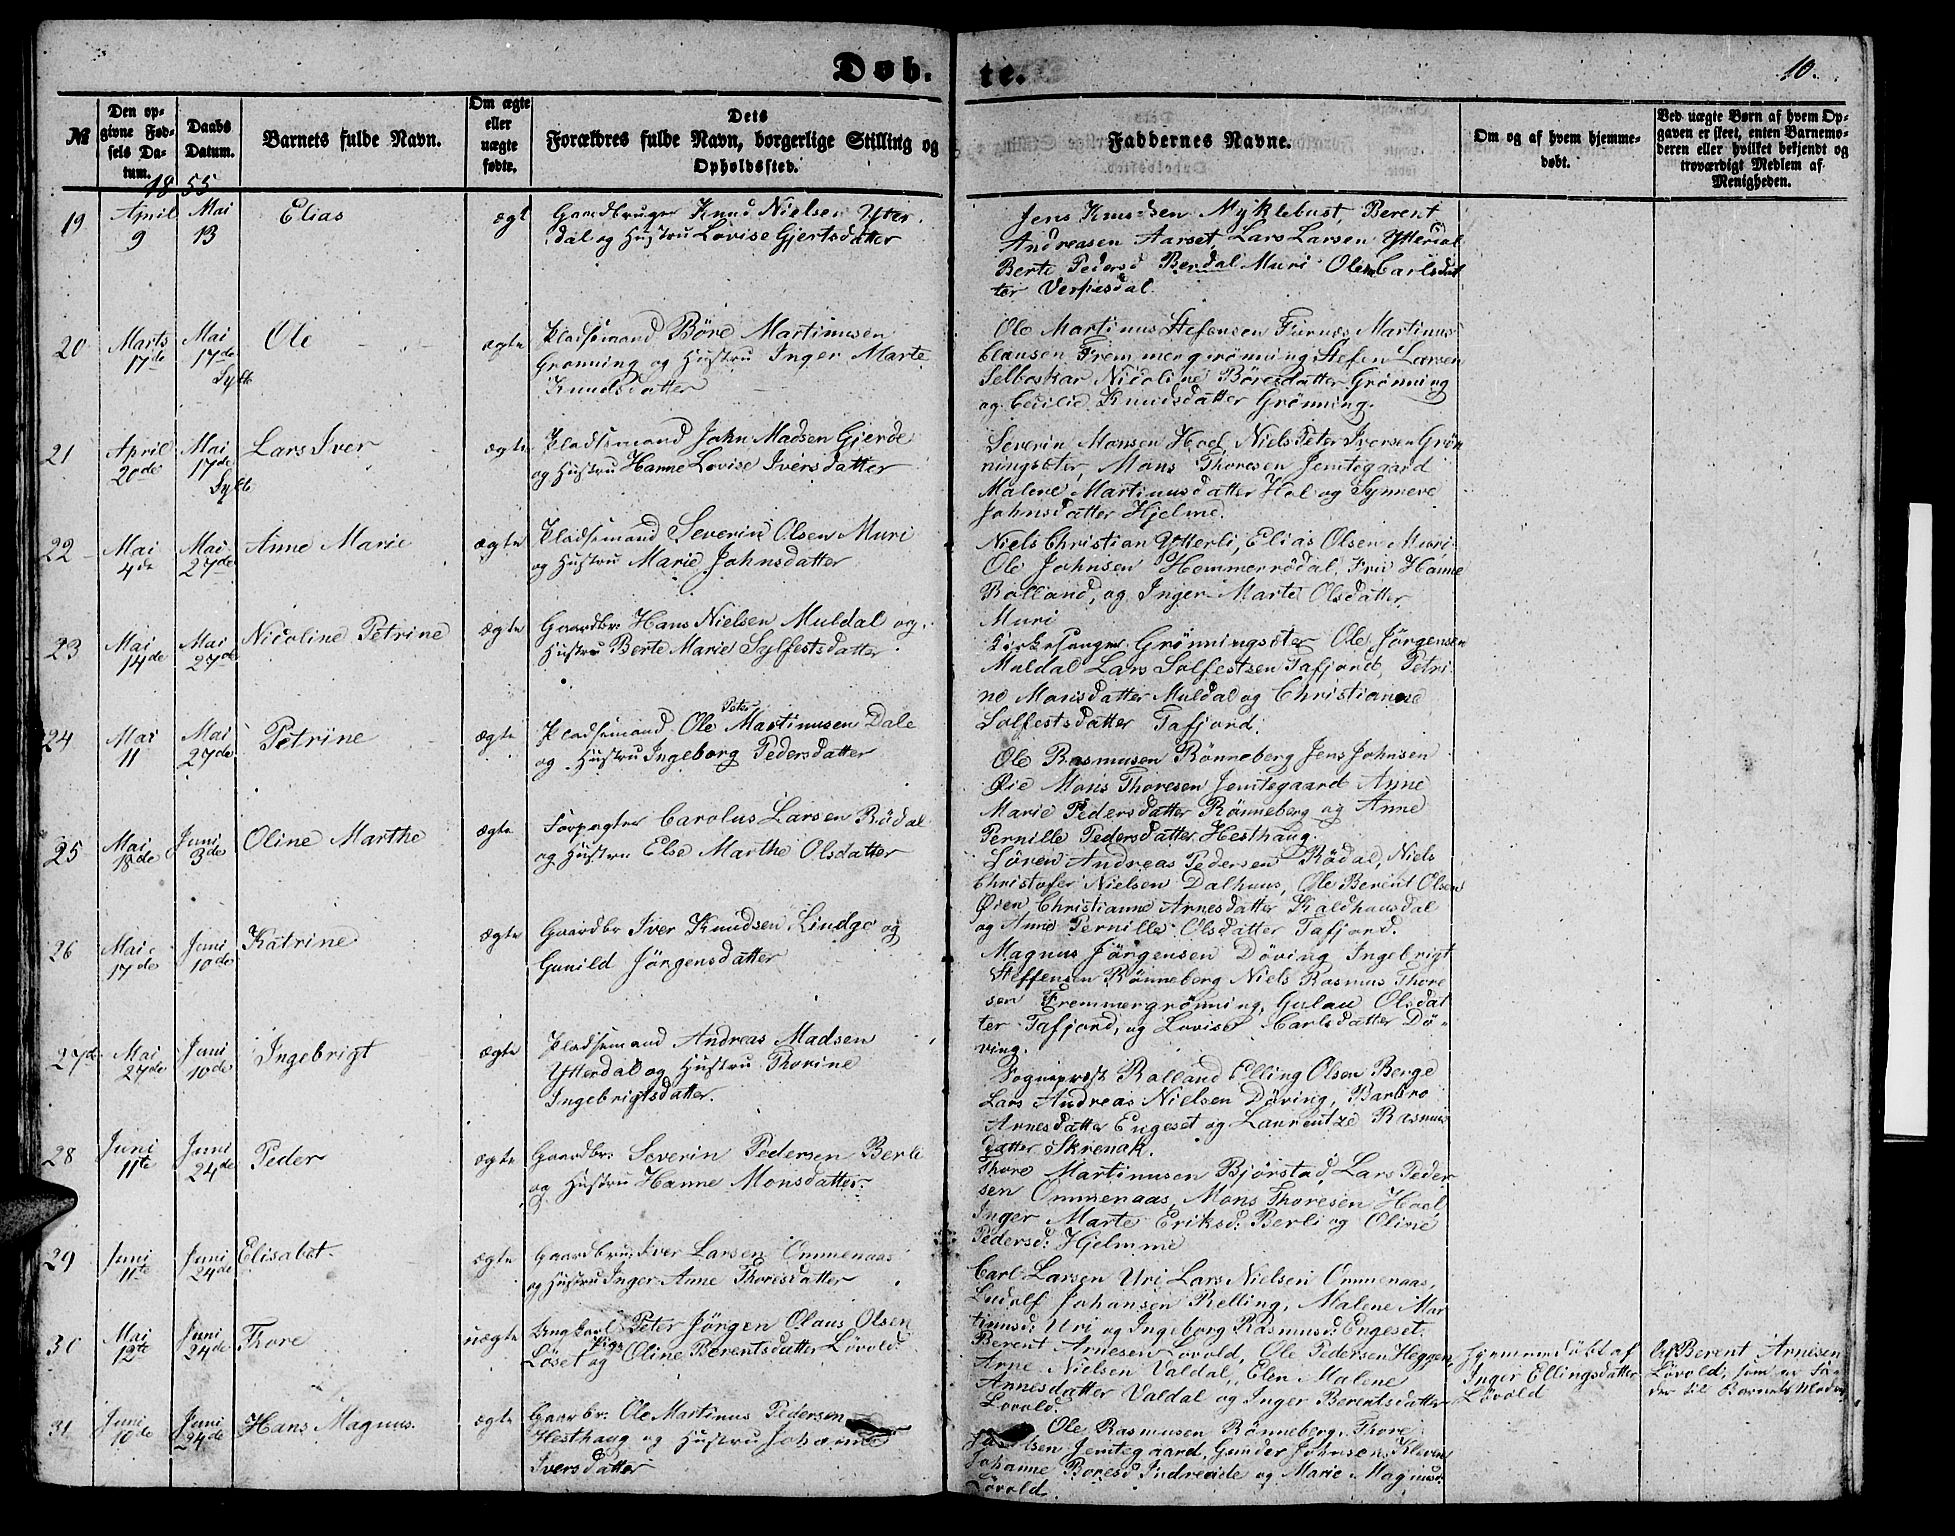 Døb-
te.
10.
№
Den op-
givne Fød-
sels Da-
tum.
Daabs
Datum.
Barnets fulde Navn.
Om ægte
eller
uægte
fødte.
Dets
Forældres fulde Navn, borgerlige Stilling og
Opholdssted.
Faddernes Navne.
Om og af hvem hjemme-
døbt.
Ved uægte Børn af hvem Op-
gaven er skeet, enten Barnemo-
deren eller hvilket bekjendt og
troværdigt Medlem af
Menigheden.
1855
19
April
9
Mai
13
Elias
ægt
Gaardbruger Knud Nielsen Ytter
dal og Hustru Lovise Gjertsdatter
Jens Knudsen Myklebust, Berent
Andreasen Aarset, Lars Larsen Ytterdal
Berte Pedersd Berdal Muri Carlsdat
ter
20
Marts
17de
Mai
17de
Sylte
Ole
ægte
Pladsemand Böre Martinusen
Grønning og Hustru Inger Marte
Knudsdatter
Ole Martinus Stefensen Furnæs Martinus
Clausen Fremmergrönning Stefen Larsen
Selboskar Nicoline Böresdatter Grönning
og Cecilie Knudsdatter Grönning.
21
April
20de
Mai
17de
Sylte
Lars Iver
ægte
Pladsemand John Madsen Gjerde
og Hustru Hanne Lovise Iversdatter
Severin Monsen Hoel Niels Peter Iversen Grön
ningsæter, Mons Thoresen Jemtegaard
Malene Martinusdatter Hol og Synneve
Johnsdatter Hjelme.
22
Mai
4de
Mai
27de
Anne Marie
ægte
Pladsemand Severin Olsen Muri
og Hustru Marie Johnsdatter
Niels Christian Ytterli, Elias Olsen Muri
Ole Johnsen Hemmerrödal, Fru Hanne
Rolland, og Inger Marte Olsdatter
Muri
23
Mai
14de
Mai
27de
Nicoline Petrine
ægte
Gaardbr: Hans Nielsen Muldal og
Hustru Berte Marie Sylfestsdatter
Kirkesanger Grönningsæter Ole Jörgensen
Muldal Lars Solfestsen Tafjord, Petri
ne Monsdatter Muldal og Christianne
Solfestsdatter Tafjord.
24
Mai
11
Mai
27de
Petrine
ægte
Peter
Pladsemand Ole Martinusen Dale
og Hustru Ingeborg Pedersdatter
Ole Rasmusen Rönneberg Jens Johnsen
Øie Mons Thoresen Jemtegaard Anne
Marie Pedersdatter Rönneberg og Anne
Pernille Pedersdatter Hesthaug.
25
Mai
18de
Juni
3de
Oline Marthe
ægte
Forpagter Carolus Larsen Rödal
og Hustru Else Marthe Olsdatter
Sören Andreas Pedersen Rödal, Niels
Christofer Nielsen Dalhuus, Ole Berent Olsen
Øien Christianne Arnesdatter Kaldhusdal
og Anne Pernille Olsdatter Tafjord.
26
Mai
17de
Juni
10de
Katrine
ægte
Gaardbr Iver Knudsen Lindge og
Gunild Jörgensdatter
Magnus Jörgensen Döving Ingebrigt
Steffensen Rönneberg Niels Rasmus Thore
sen Fremmergrönning, Gulau Olsdat
ter Tafjord, og Lovise Carlsdatter Dö-
ving.
27de
Mai
27de
Juni
10de
Ingebrigt
ægte
Pladsemand Andreas Madsen
Ytterdal og Hustru Thorine
Ingebrigtsdatter.
Sognepræst Rolland Elling Olsen Berge
Lars Andreas Nielsen Döving, Barbro
Arnesdatter Engeset og Laurentze Rasmus
datter Skrenak.
28
Juni
11te
Juni
24de
Peder
ægte
Gaardbr: Severin Pedersen Berli
og Hustru Hanne Monsdatter
Thore Martinusen Bjørstad, Lars Peder
sen Ommenaas, Mons Thoresen Hoel
Inger Marte Eriksd: Berli og Oline
Pedersd: Hjelmme
29
Juni
11te
Juni
24de
Elisabet
ægte
Gaardbru: Iver Larsen Ommenaas
og Hustru Inger Anne Thoresdatter
Carl Larsen Uri Lars Nielsen Ommenaas,
Ludolf Johansen Relling, Malene Mar
tinusd: Uri og Ingeborg Rasmusd: Engeset.
30
Mai
12te
Juni
24de
Thore
uægte
Ungkarl Peter Jörgen Olaus Olsen
Löset og Pige Oline Berentsdatter Lövold
Berent Arnesen Lovold, Ole Pedersen Heggen,
Arne Nielsen Valdal, Elen Malene
Arnesdatter Valdal og Inger Berentsdatter
Lövold.
Hjemmedöbt af
Inger Ellingsdatter
Lövold
Af Berent Arnesen
Lövold, som er Fa-
der til Barnets Moder
31
Juni
10de
Juni
24de
Hans Magnus.
ægte
Gaarbr: Ole Martinus Pedersen
Hesthaug og Hustru Johanne
Iversdatter
Ole Rasmusen Rönneberg, Thore
Olsen Jemtegaard, Gunder Johnsen Kleven
Johanne Boresd Indreeide og Marie Magnusd:
Lövold